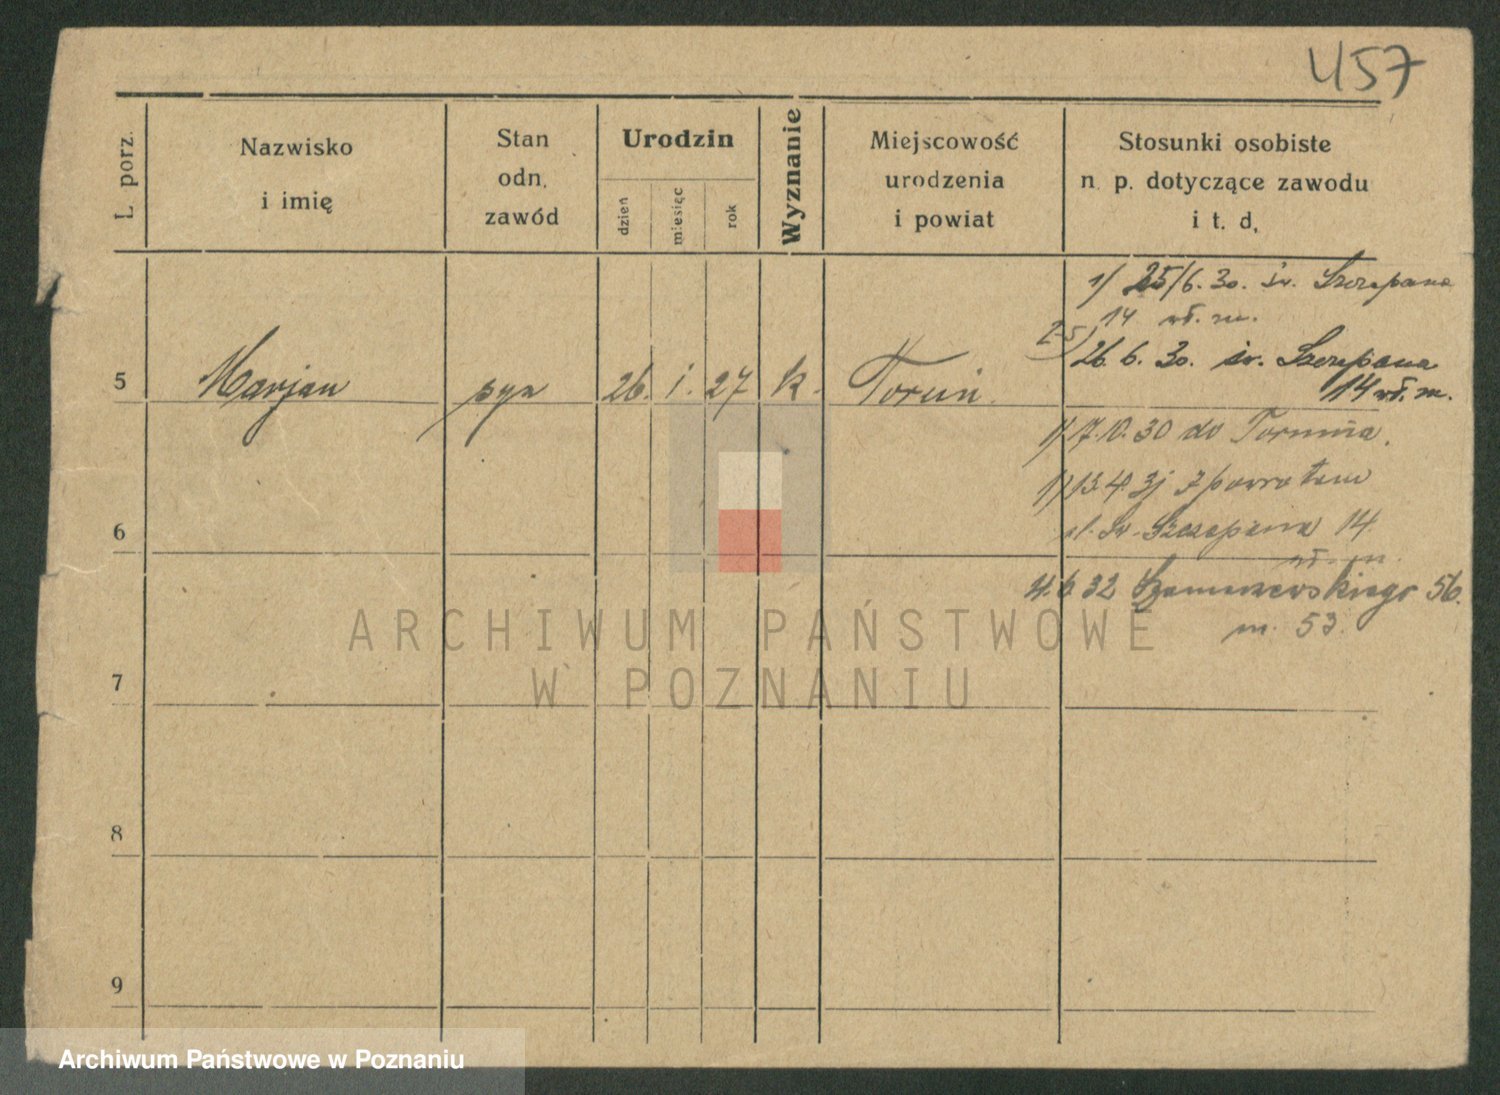 457
L. porz.
Nazwisko
i imię
Stan
odn.
zawód
Urodzin
dzień
miesięc
rok
Wyznanie
Miejscowość
urodzenia
i powiat
Stosunki osobiste
n. p. dotyczące zawodu
i t. d.
1/ 25/6. 30. św. Szczepana
14 wł. m.
2-5/ 26. 6. 30. św. Szczepana
14 wł. m.
5 Marjan syn 26. 1. 27 k. Toruń.
1/ 7.10.30 do Torunia.
1/ 13.4.31 z powrotem
ul. Św. Szczepana 14.
wł. m.
6
4.6.32 Szamarzewskiego 56.
m. 53.
ARCHIWUM PAŃSTWOWE
W POZNANIU
7
8
9
Archiwum Państwowe w Poznaniu